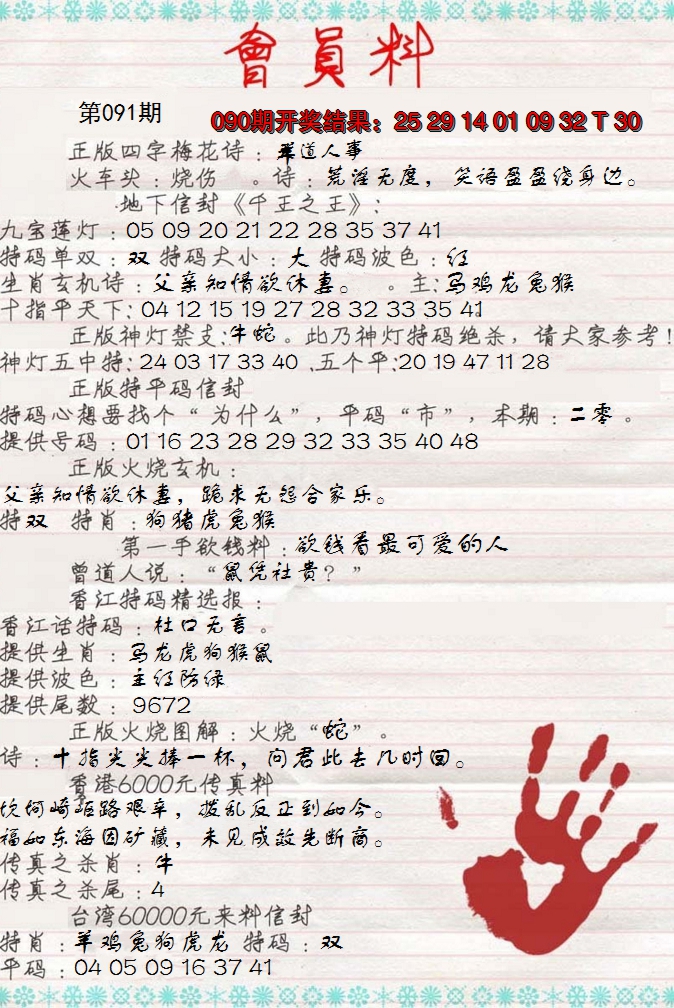 會員料
第091期
090期开奖结果：25 29 14 01 09 32 T 30
正版四字梅花诗：羣道人事
火车头：烧伤 。诗：荒淫无度，笑语盈盈绕身边。
地下信封《千王之王》：
九宝莲灯：05 09 20 21 22 28 35 37 41
特码单双：双 特码大小：大 特码波色：红
生肖玄机诗：父亲知情欲休妻。 。主：马鸡龙兔猴
十指平天下：04 12 15 19 27 28 32 33 35 41
正版神灯禁支：牛蛇。此乃神灯特码绝杀，请大家参考！
神灯五中特：24 03 17 33 40 .五个平：20 19 47 11 28
正版特平码信封
特码心想要找个“为什么”，平码“市”，本期：二零。
提供号码：01 16 23 28 29 32 33 35 40 48
正版火烧玄机：
父亲知情欲休妻，跪求无怨合家乐。
特双 特肖：狗猪虎兔猴
第一手欲钱料：欲钱看最可爱的人
曾道人说：“鼠凭社贵？”
香江特码精选报：
香江话特码：杜口无言。
提供生肖：马龙虎狗猴鼠
提供波色：主红防绿
提供尾数：9672
正版火烧图解：火烧“蛇”。
诗：十指尖尖捧一杯，问君此去几时回。
香港6000元传真料
坎坷崎岖路艰辛，拨乱反正到如今。
福如东海因矿藏，未见成效先断商。
传真之杀肖：牛
传真之杀尾：4
台湾60000元来料信封
特肖：羊鸡兔狗虎龙 特码：双
平码：04 05 09 16 37 41